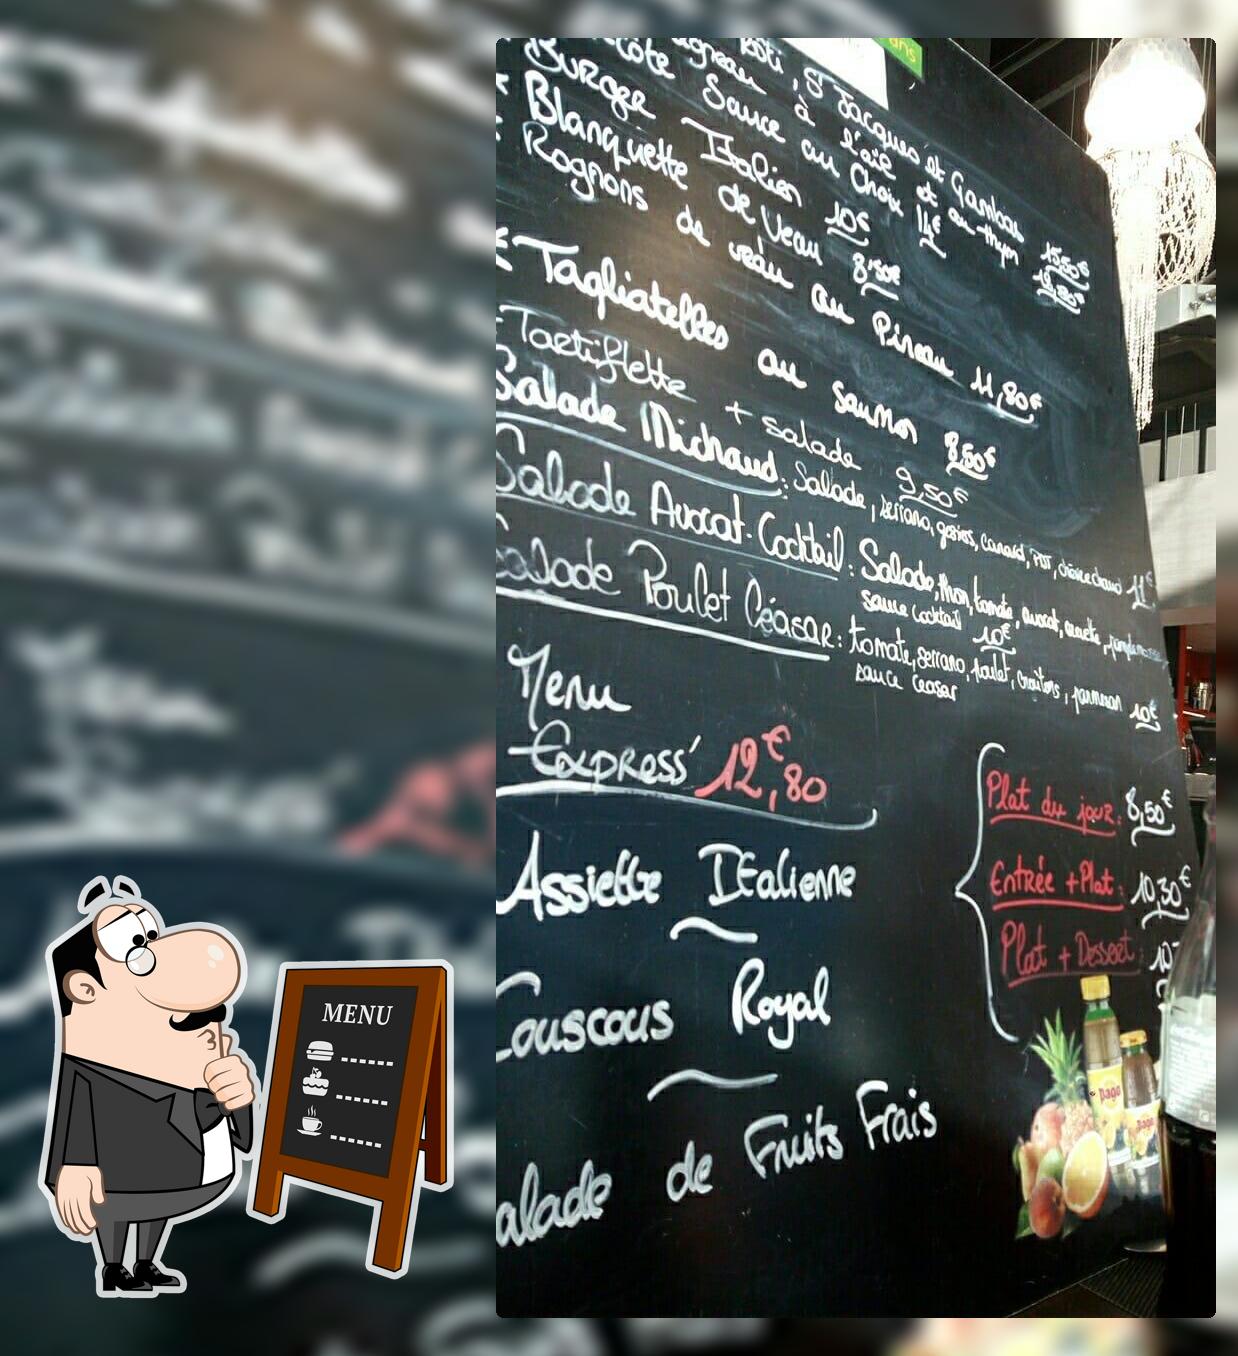 ans
Rôti, St Jacques et Gambas 15,50€
agneau à l'ail et au thym 12,80€
Côte Sauce au Choix 14€
Burger Italien 10€
Blanquette de Veau 8,50€
Rognons de veau au Pineau 11,80€
Tagliatelles au saumon 8,50€
Tartiflette + salade 9,50€
Salade Michaud: Salade, serrano, gésiers, canard, PDT, chèvre chaud 11€
Salade Avocat-Cocktail: Salade, thon, tomate, avocat, crevette,
sauce Cocktail 10€
Salade Poulet Céasar: tomate, serrano, poulet, croûtons, parmesan 10€
sauce Ceasar
Menu
Express' 12,80€
Plat du jour: 8,50€
Entrée + Plat: 10,30€
Plat + Dessert 10
Assiette Italienne
Couscous Royal
alade de Fruits Frais
Pago
Pago
MENU